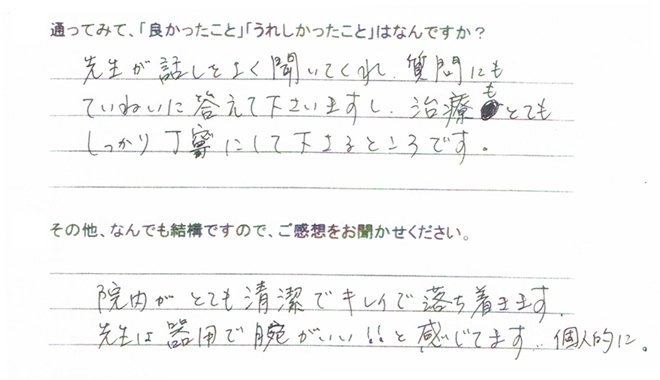 通ってみて、「良かったこと」「うれしかったこと」はなんですか？
先生が話しをよく聞いてくれ、質問にも
ていねいに答えて下さいますし、治療もとても
しっかり丁寧にして下さるところです。
その他、なんでも結構ですので、ご感想をお聞かせください。
院内がとても清潔でキレイで落ち着きます。
先生は器用で腕がいい!!と感じてます。個人的に。